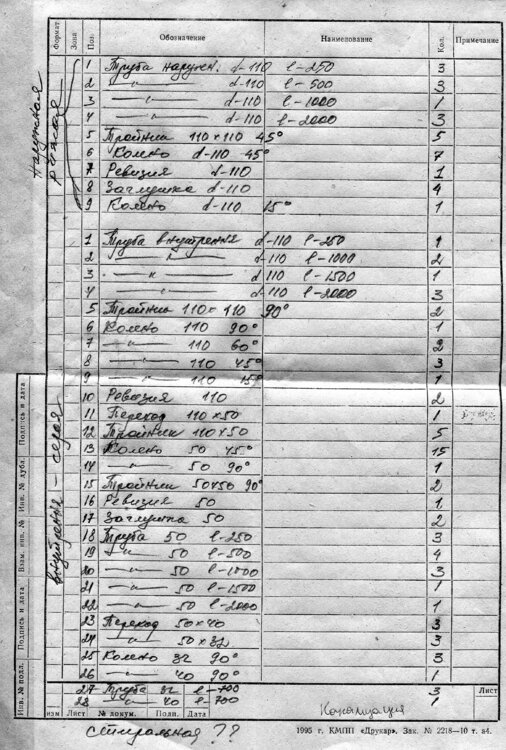 Формат Зона Поз. Обозначение Наименование Кол. Примечание
Наружная рыжая
1 Труба наружн. d-110 l-250 3
2 —"— d-110 l-500 3
3 —"— d-110 l-1000 1
4 —"— d-110 l-2000 3
5 Тройник 110×110 45° 5
6 Колено d-110 45° 7
7 Ревизия d-110 1
8 Заглушка d-110 4
9 Колено d-110 15° 1
внутрення - серая
1 Труба внутрення d-110 l-250 1
2 —"— d-110 l-1000 2
3 —"— d-110 l-1500 1
4 —"— d-110 l-2000 3
5 Тройник 110×110 90° 2
6 Колено 110 90° 1
7 —"— 110 60° 2
8 —"— 110 45° 3
9 —"— 110 15° 1
10 Ревизия 110 2
11 Переход 110×50 1
12 Тройник 110×50 5
13 Колено 50 45° 15
14 —"— 50 90° 1
15 Тройник 50×50 90° 2
16 Ревизия 50 1
17 Заглушка 50 2
18 Труба 50 l-250 3
19 —"— 50 l-500 4
20 —"— 50 l-1000 3
21 —"— 50 l-1500 1
22 —"— 50 l-2000 1
23 Переход 50×40 3
24 —"— 50×32 3
25 Колено 32 90° 3
26 —"— 40 90° 1
27 Труба 32 l-700 3
28 —"— 40 l-700 1
Подпись и дата
Инв. № дубл.
Взам. инв. №
Подпись и дата
Инв. № подл.
изм Лист № докум. Подп. Дата
Канализация
Лист
стиральная ??
1995 г. КМПП «Друкар». Зак. № 2218—10 т. а4.